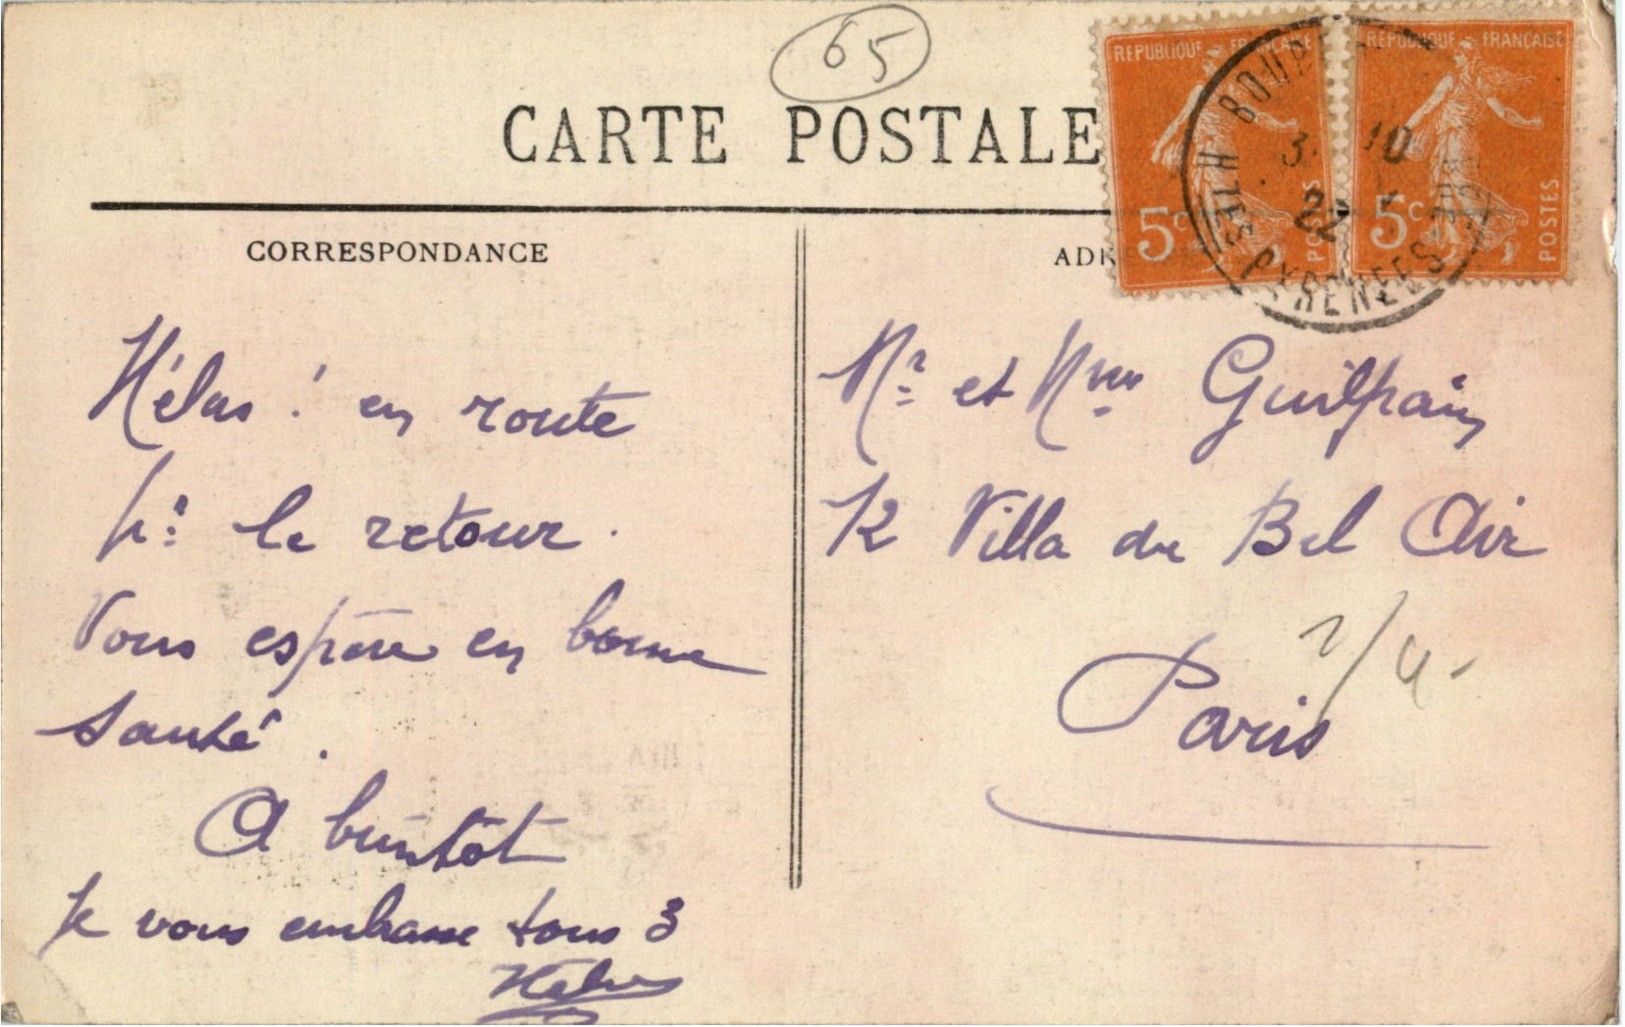 65
CARTE POSTALE
REPUBLIQUE FRANÇAISE
5c POSTES
REPUBLIQUE FRANÇAISE
5c POSTES
10
22
HTES PYRENEES
CORRESPONDANCE
Hélas ! en route
pr le retour.
Vous espère en bonne
santé.
A bientôt
Je vous embrasse tous 3
Mr et Mme Guilpain
12 Villa du Bel Air
Paris